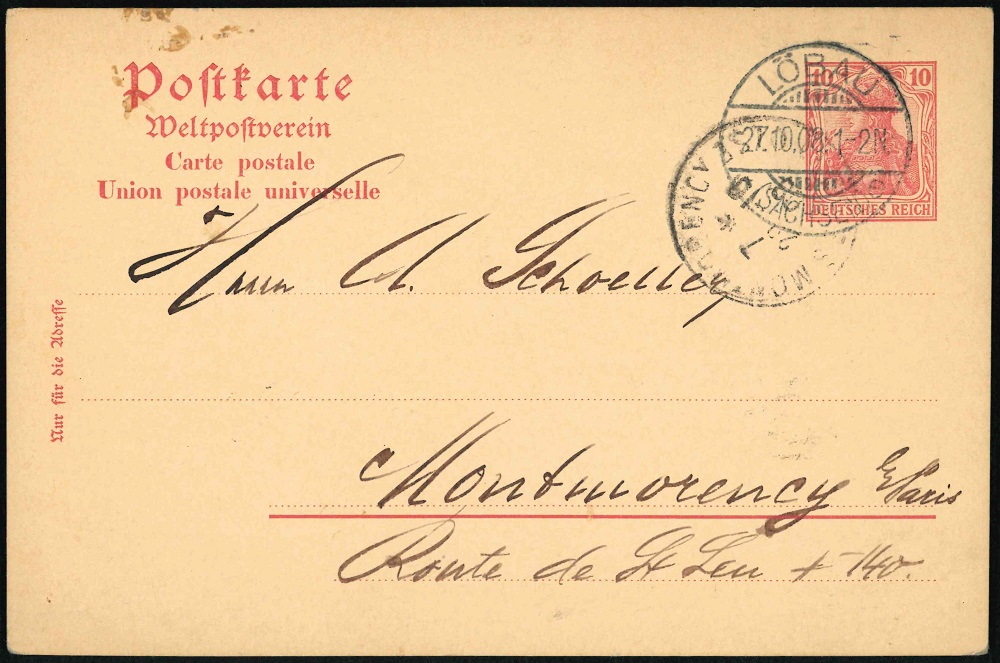 Postkarte
Weltpostverein
Carte postale
Union postale universelle
Nur für die Adresse
10 10
DEUTSCHES REICH
LÖBAU
27.10.08.1-2N.
(SACHSEN)
MONTMORENCY
Herrn A. Schoeller
Montmorency Paris
Route de St Leu + 140.